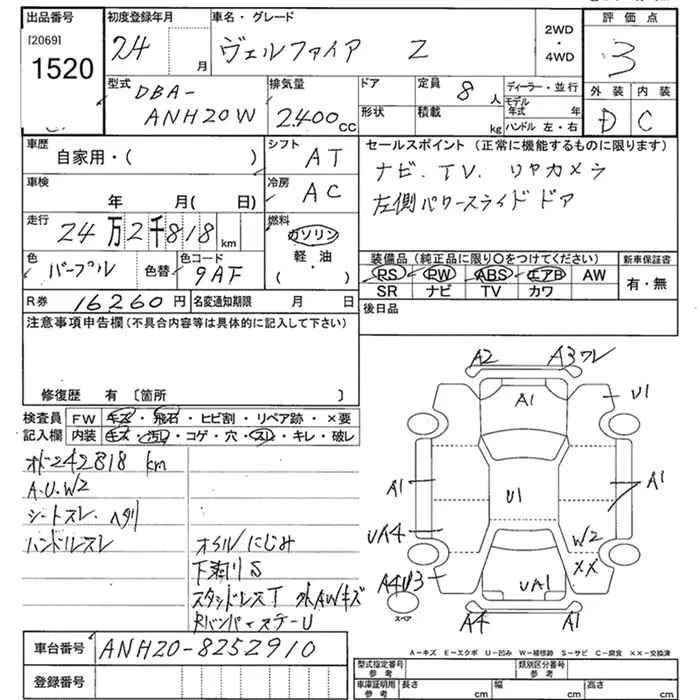 出品番号
[2069]
1520
初度登録年月
24 月
車名・グレード
ヴェルファイア Z
2WD
・
4WD
評価点
3
外装 内装
D C
型式
DBA-
ANH20W
排気量
2.400 CC
ドア
形状
定員
8 人
積載
kg
ディーラー・並行
モデル
年式 年
ハンドル 左・右
車歴
自家用・( )
シフト
AT
車検
年 月( 日)
冷房
AC
走行
24万2千818 km
燃料
ガソリン
軽・油
( )
色
パープル
色替
色コード
9AF
R券
16260円
名変通知期限 月 日
セールスポイント(正常に機能するものに限ります)
ナビ.TV.リヤカメラ
左側パワースライドドア
装備品(純正品に限り○をつけてください)
新車保証書
RS PW ABS エアB AW
SR ナビ TV カワ
有・無
後日品
注意事項申告欄(不具合内容等は具体的に記入して下さい)
修復歴 有〔箇所 〕
検査員
記入欄
FW キズ・飛石・ヒビ割・リペア跡・×要
内装 キズ・汚れ・コゲ・穴・スレ・キレ・破レ
オド242818 km
A.U.W2
シートスレ.ヘタリ
ハンドルスレ
オイルにじみ
下廻りS
スタッドレスT 外AWキズ
RバンパーステーU
車台番号
ANH20-8252910
登録番号
A2
A3ワレ
A1
U1
A1
A1
U1
UA4
W2
××
A4U3
UA1
スペア
A4
A1
A-キズ E-エクボ U-凹み W-補修跡 S-サビ C-腐食 ××-交換済
型式指定番号
参考
類別区分番号
参考
車庫証明用
参考
長さ cm
幅 cm
高さ cm